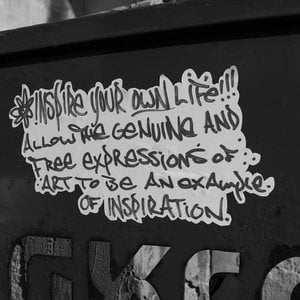 *INSPIRE YOUR OWN LIFE!!!
ALLOW THE GENUINE AND
FREE EXPRESSIONS OF
ART TO BE AN EXAMPLE
OF INSPIRATION.